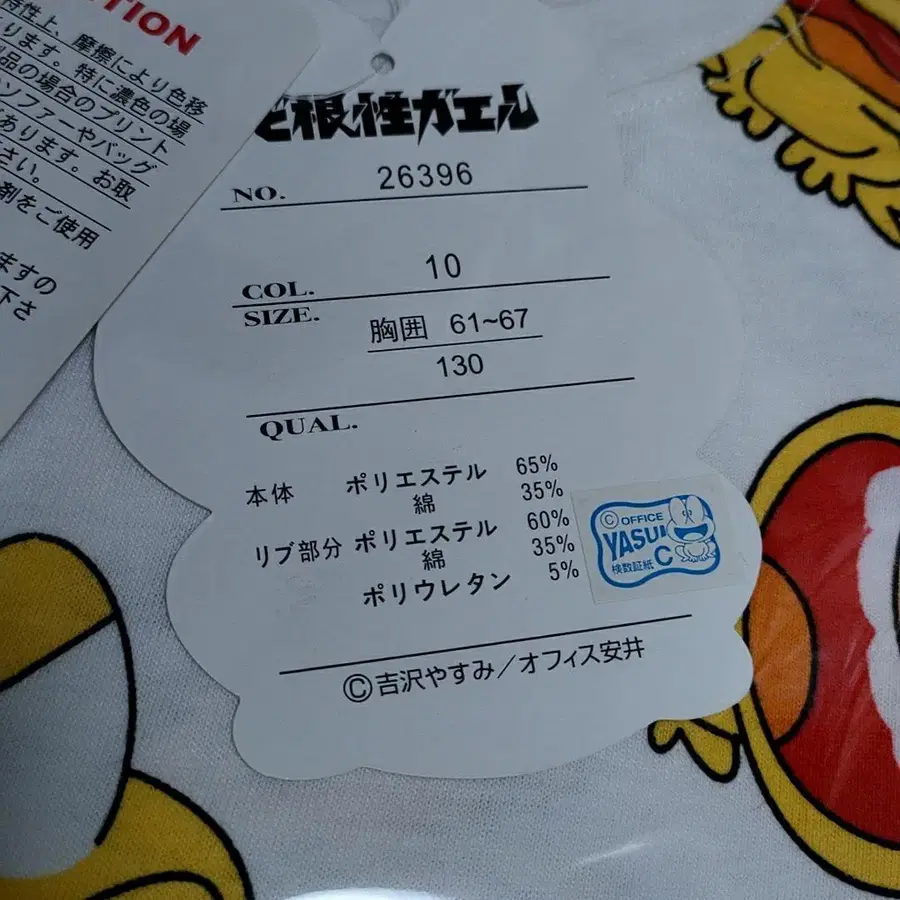 TION
特性上、摩擦により色移
ります。特に濃色の場
品の場合のプリント
ソファーやバッグ
あります。お取
さい。
剤をご使用
ますの
下さ
ど根性ガエル
NO. 26396
COL. 10
SIZE. 胸囲 61~67
130
QUAL.
本体 ポリエステル 65%
綿 35%
リブ部分 ポリエステル 60%
綿 35%
ポリウレタン 5%
© OFFICE
YASUI
C
検数証紙
©吉沢やすみ/オフィス安井